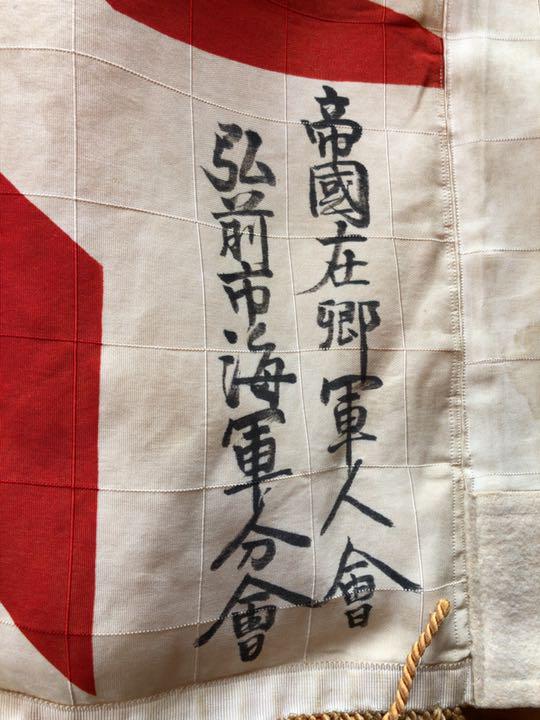 帝國在郷軍人會
弘前市海軍分會